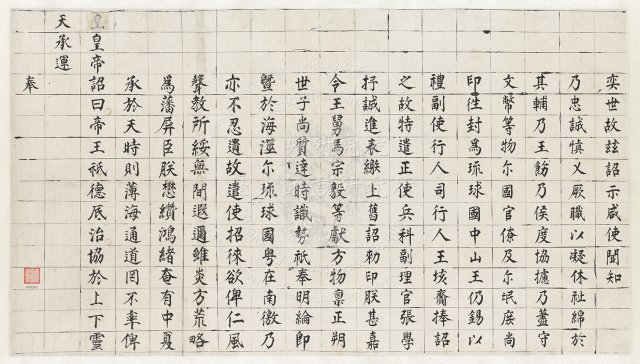 奉
天承運
皇皇帝詔曰帝王祇德底治協於上下靈
承於天時則薄海通道罔不率俾
為藩屏臣朕懋纘鴻緒奄有中夏
聲教所綏無間遐邇雖炎方荒略
亦不忍遺故遣使招徠欲俾仁風
暨於海澨尔琉球國粵在南徼乃
世子尚質達時識勢祇奉明綸即
令王舅馬宗毅等獻方物稟正朔
抒誠進表繳上舊詔勅印朕甚嘉
之故特遣正使兵科副理官張學
禮副使行人司行人王垓齎捧詔
印徃封為琉球國中山王仍錫以
文幣等物尔國官僚及尔氓庶尚
其輔乃王飭乃侯度協攄乃藎守
乃忠誠慎乂厥職以凝休祉綿於
奕世故玆詔示咸使聞知